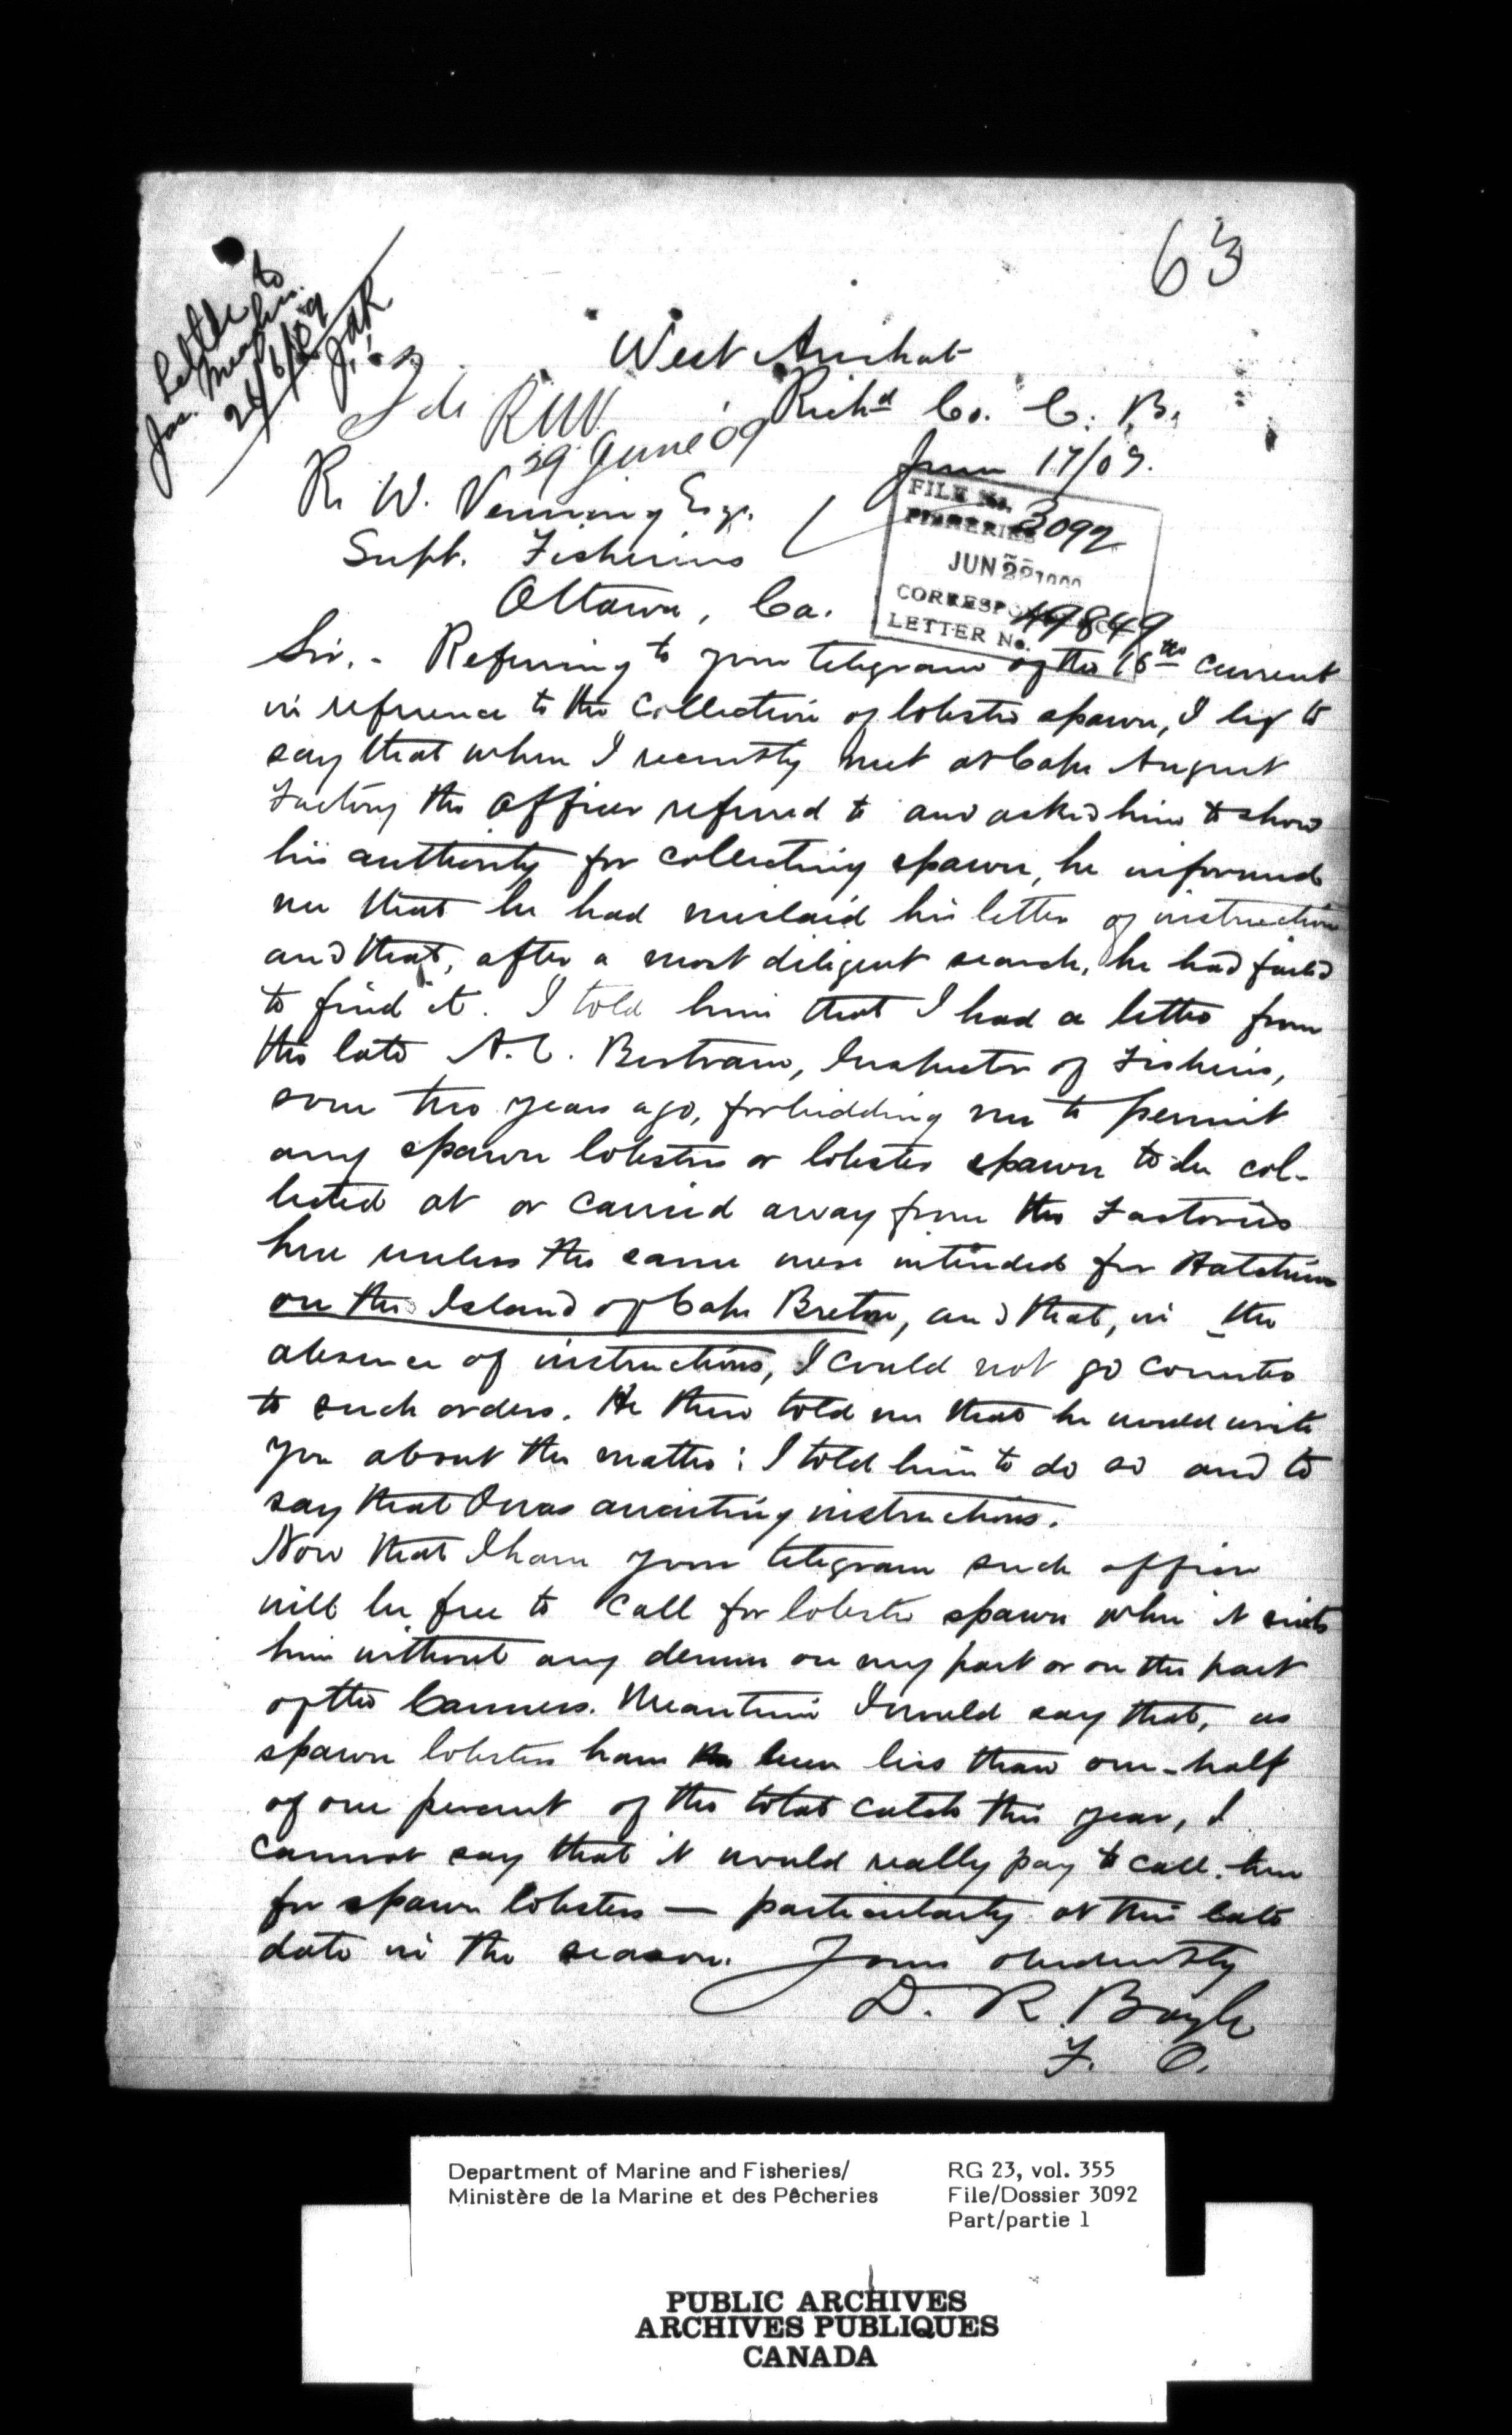 63
Letter to
Jas.
JAR
West Arichat
Richd Co. C. B.
RNV
29 June 09
June 17/09.
R. W. Venning Esqr.
Supt. Fisheries
Ottawa, Ca.
FILE No. 3092
FISHERIES
JUN 22 1909
CORRESPONDENCE
LETTER No. 49849
Sir,- Referring to your telegram of the 16th current
in reference to the collection of lobster spawn, I beg to
say that when I recently met at Cape August
Factory the Officer referred to and asked him to show
his authority for collecting spawn, he informed
me that he had mislaid his letter of instruction
and that, after a most diligent search, he had failed
to find it. I told him that I had a letter from
the late A. C. Bertram, Inspector of Fisheries,
some two years ago, forbidding me to permit
any spawn lobsters or lobster spawn to be col-
lected at or carried away from the Factories
here unless the same were intended for Hatcheries
on the Island of Cape Breton, and that, in the
absence of instructions, I could not go counter
to such orders. He then told me that he would write
you about the matter; I told him to do so and to
say that I was awaiting instructions.
Now that I have your telegram such officer
will be free to call for lobster spawn when it suits
him without any demur on my part or on the part
of the Canners. Meantime I would say that, as
spawn lobsters have been less than one-half
of one percent of the total catch this year, I
cannot say that it would really pay to call here
for spawn lobsters — particularly at this late
date in the season. Yours obediently
D. R. Boyle
F. O.
Department of Marine and Fisheries/
Ministère de la Marine et des Pêcheries
RG 23, vol. 355
File/Dossier 3092
Part/partie 1
PUBLIC ARCHIVES
ARCHIVES PUBLIQUES
CANADA